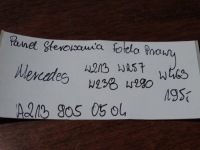 Panel Sterowania Fotela Prawy
Mercedes W213 W257 W463
W238 W290 195,-
A213 905 05 04